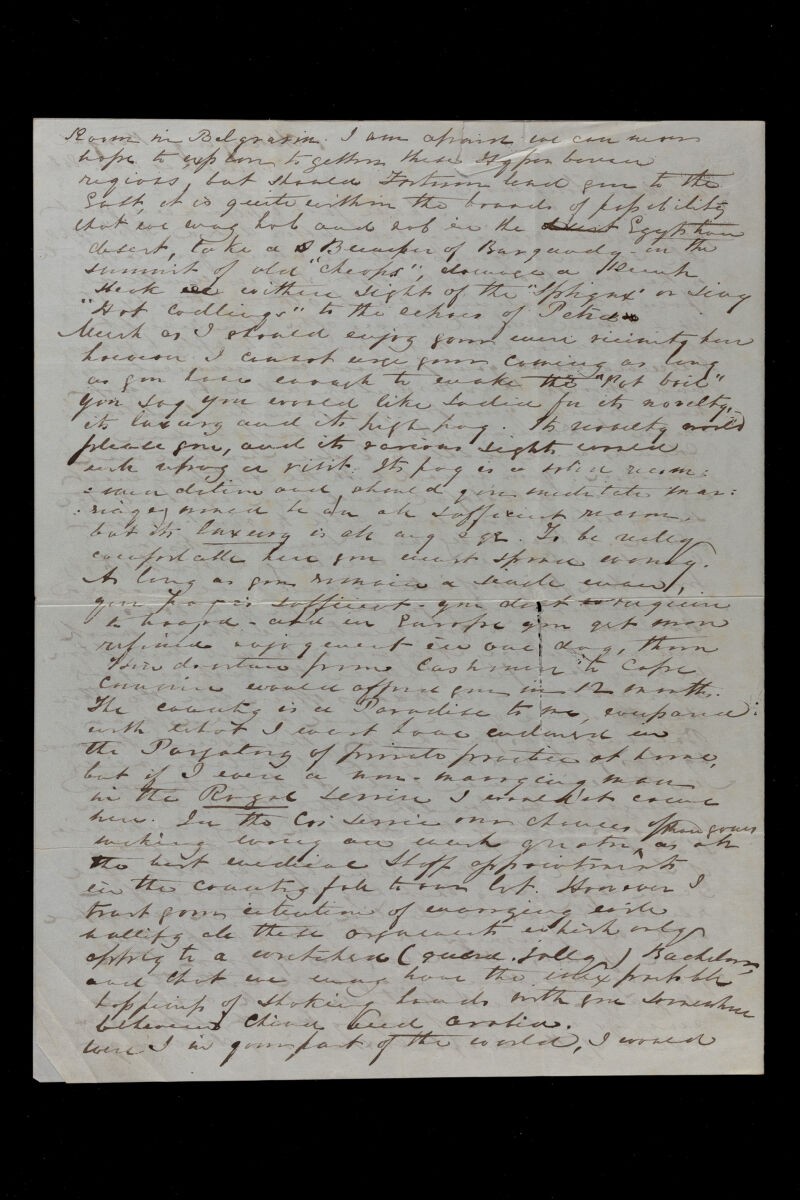 Room in Belgravia. I am afraid we can never
hope to explore together these Hyperborean
regions, but should Fortune lend you to the
East, it is quite within the bounds of possibility
that we may hob and nob in the Egyptian
desert, take a Beaker of Burgundy on the
summit of old "Cheops", a Rump
Steak within sight of the "Sphynx" or sing
"Hot Codlings" to the echoes of Petra
Much as I should enjoy your near vicinity here
however I cannot urge your coming as long
as you have enough to make the "Pot boil"
You say you would like India for its novelty,
its luxury and its high pay. Its novelty would
please you, and its various sights would
well repay a visit. Its pay is a solid recom:
:mendation and, should you meditate mar:
:riage, would be an all sufficient reason,
but its luxury is all my eye. To be really
comfortable here you must spend money.
As long as you remain a single man,
your pay is sufficient - you don't require
a hoard - and in Europe you get more
refined enjoyment in one day, than
Hindoostan from Cashmere to Cape
Comorin would afford you in 12 months.
The country is a Paradise to me, compared
with what I must have endured in
the Purgatory of private practice at home,
but if I were a non-marrying man
in the Royal Service I wouldn't come
here. In the Co's Service our chances of
making money are much greater than yours, as all
the best medical Staff appointments
in the country fall to our lot. However I
trust your intention of marrying will
nullify all these arguments which only
apply to a wretched (quere. jolly) Bachelor,
and that we may have the inexpressible
happiness of shaking hands with you somewhere
between China and Arabia.
were I in your part of the world, I would